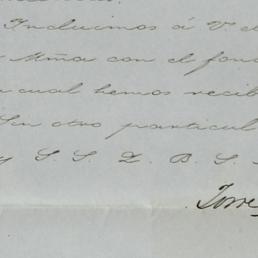 Inducimos á V.
Mña con el fon
cual hemos recib
Sin otro particul
y S. S. Q. B. S.
Torre